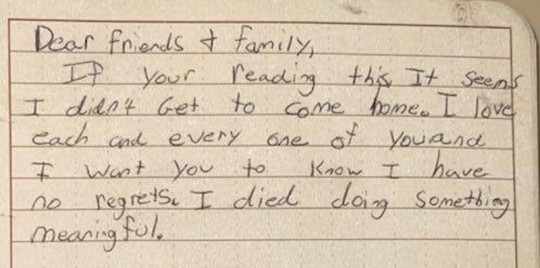 Dear friends & family,
If your reading this, It seems
I didn't Get to come home. I love
each and every one of you and
I want you to know I have
no regrets. I died doing something
meaningful.